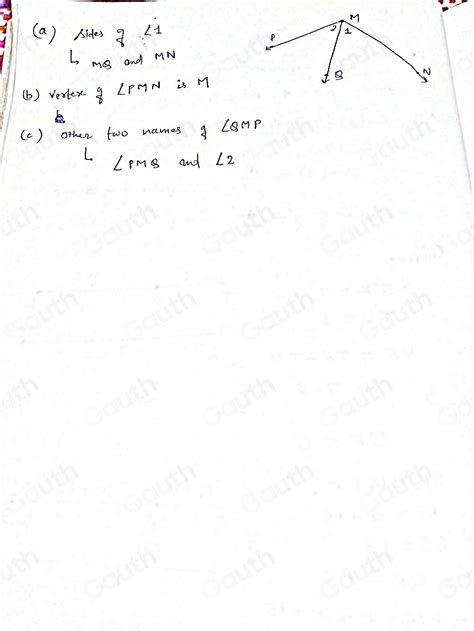 (a) sides of ∠1
MQ and MN
(b) vertex of ∠PMN is M
(c) other two names of ∠QMP
∠PMQ and ∠2
P
2
1
M
Q
N
Gauth